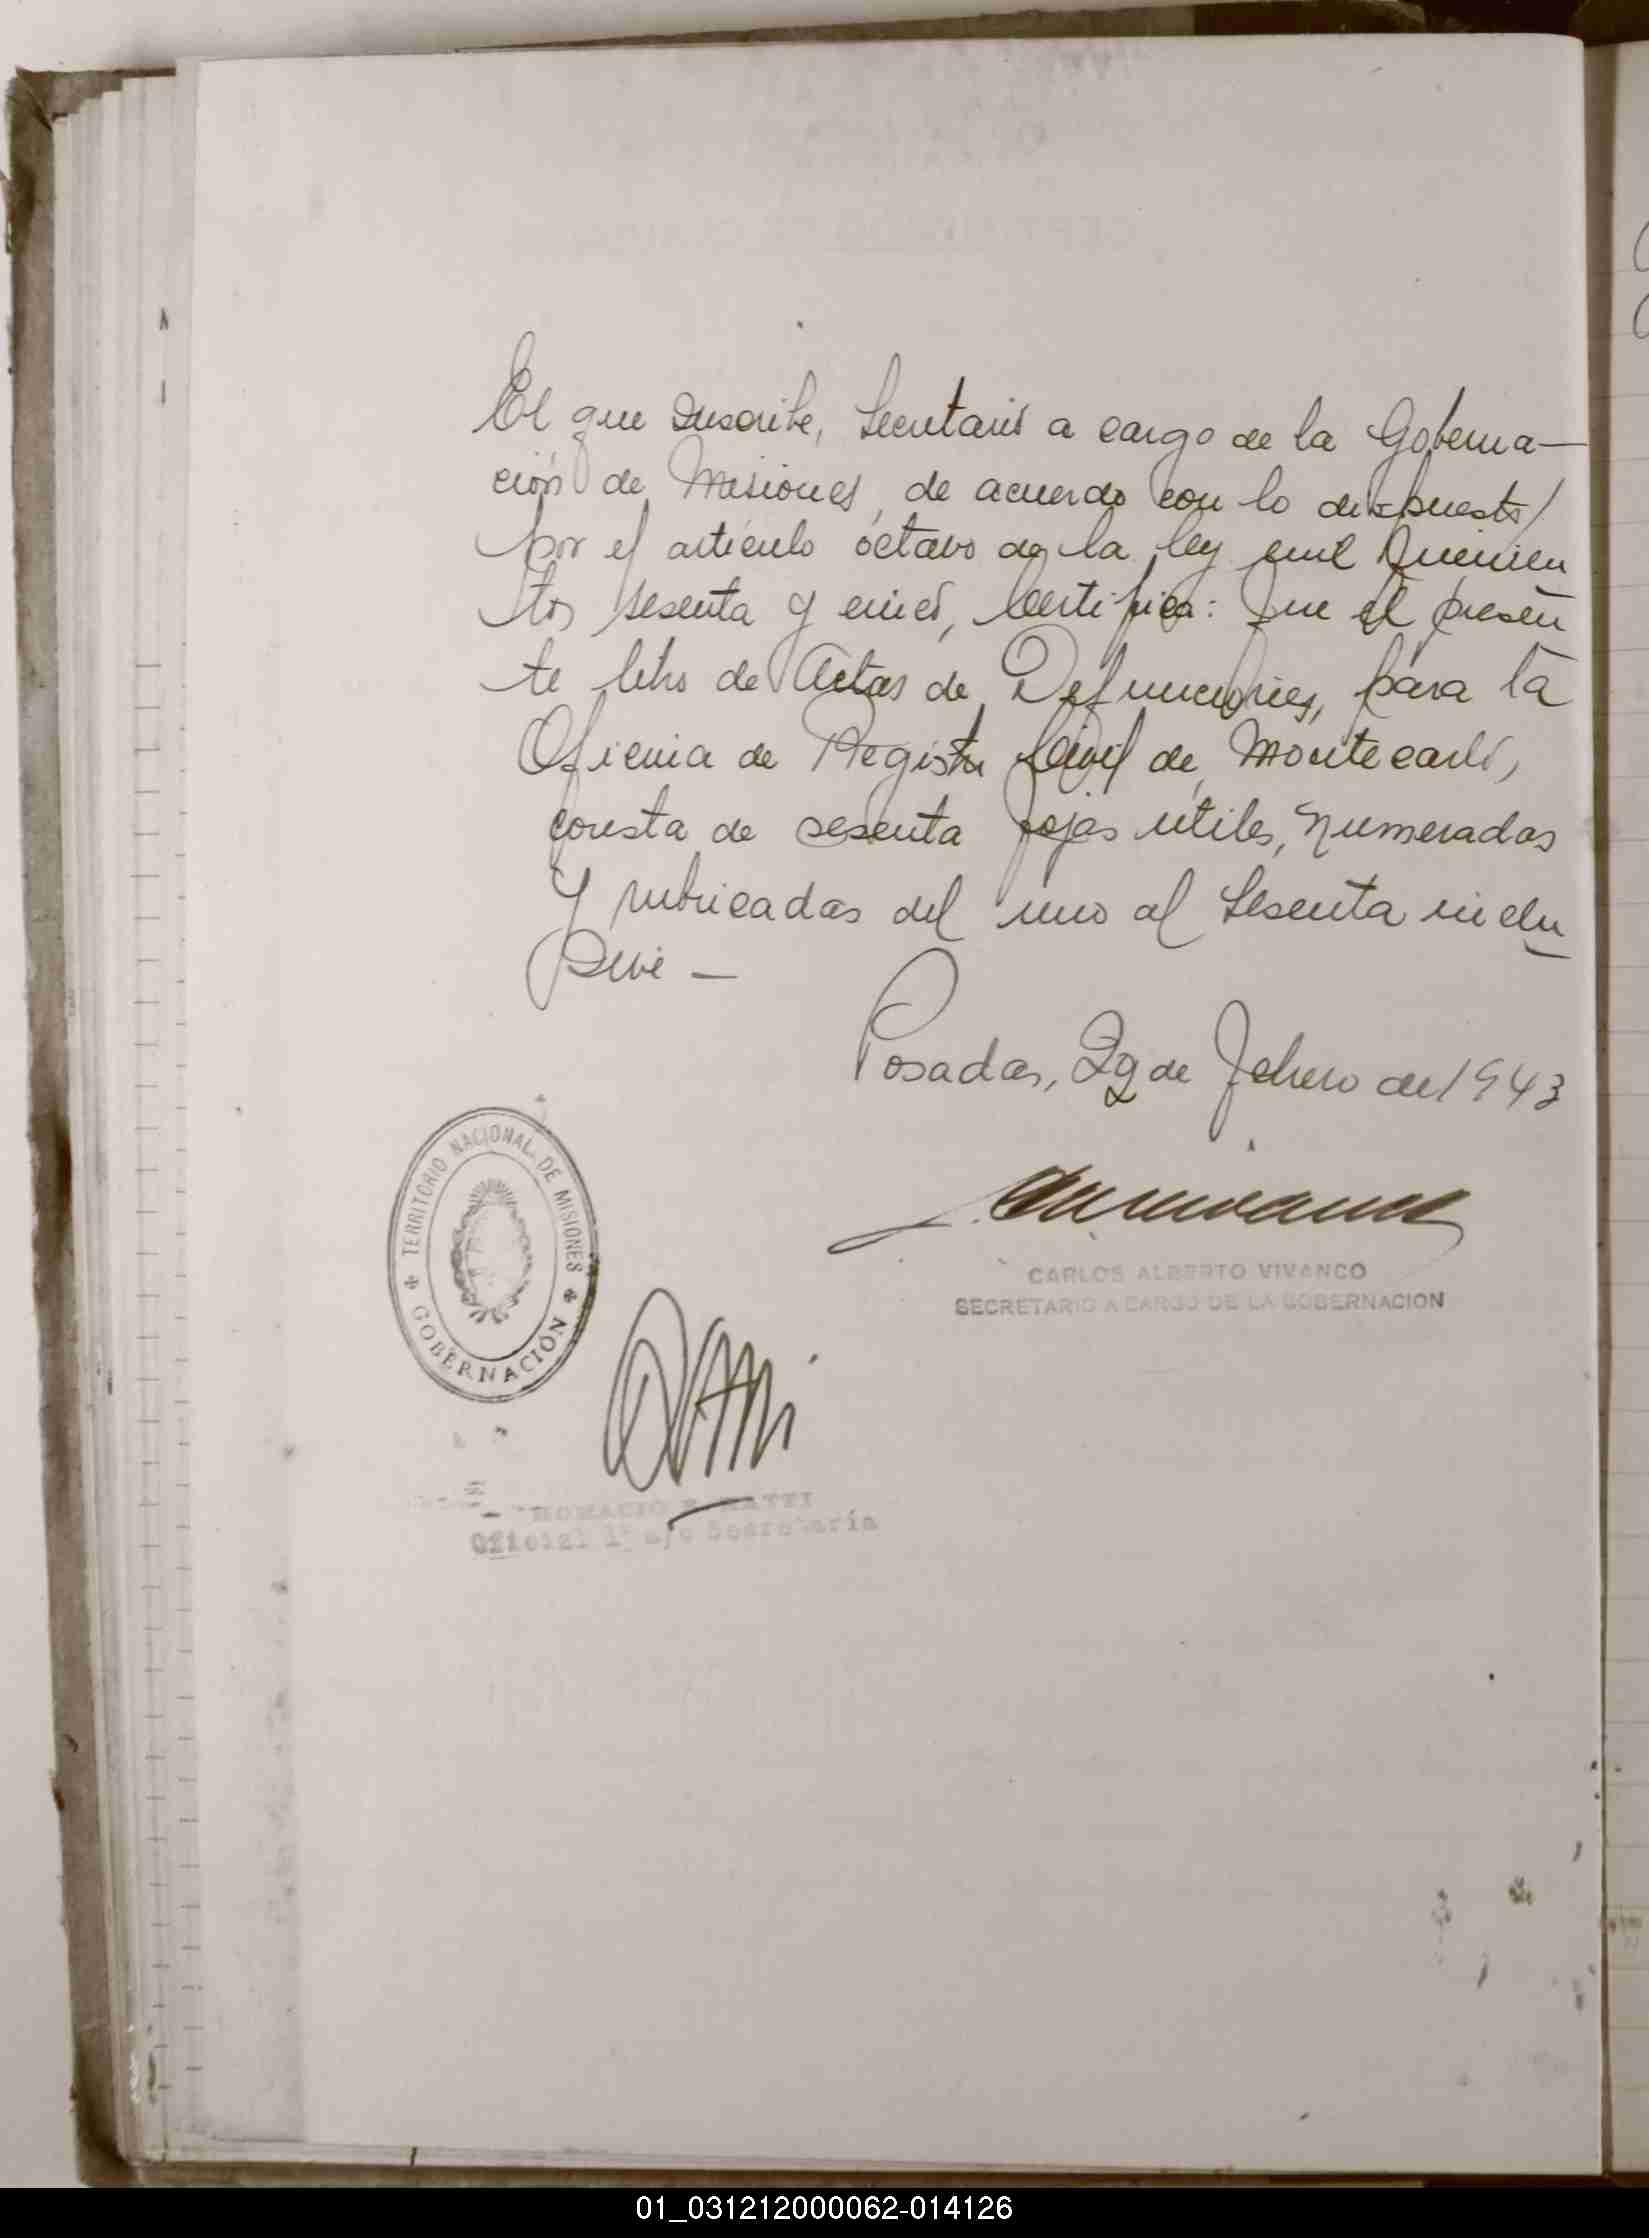 El que suscribe, Secretario a cargo de la Goberna-
ción de Misiones, de acuerdo con lo dispuesto
por el artículo octavo de la ley mil quinien
tos sesenta y cinco, Certifica: Que el presen
te libro de Actas de Defunciones, para la
Oficina de Registro Civil de Montecarlo,
consta de sesenta fojas utiles, numeradas
y rubricadas del uno al sesenta inclu
sive -
Posadas, 29 de Febrero de 1943
TERRITORIO NACIONAL DE MISIONES
GOBERNACIÓN
CARLOS ALBERTO VIVANCO
SECRETARIO A CARGO DE LA GOBERNACION
HORACIO
Oficial 1º a/c Secretaría
01_031212000062-014126